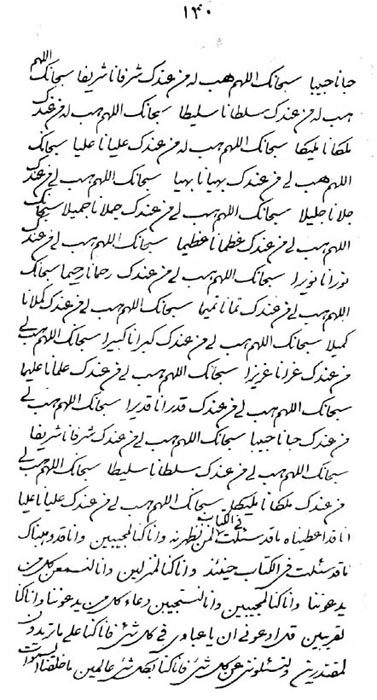 ۱۴۰
حبانا حبیبا سبحانک اللهم هب له من عندک شرفانا شریفا سبحانک اللهم
هب له من عندک سلطانا سلیطا سبحانک اللهم هب له من عندک
ملکانا ملیکا سبحانک اللهم هب له من عندک علیانا علیا سبحانک
اللهم هب لی من عندک بهیانا بهیا سبحانک اللهم هب لی من عندک
جلانا جلیلا سبحانک اللهم هب لی من عندک جملانا جمیلا سبحانک
اللهم هب لی من عندک عظمانا عظیما سبحانک اللهم هب لی من عندک
نورانا نویرا سبحانک اللهم هب لی من عندک رحمانا رحیما سبحانک
اللهم هب لی من عندک تمانا تمیما سبحانک اللهم هب لی من عندک کملانا
کمیلا سبحانک اللهم هب لی من عندک کبرانا کبیرا سبحانک اللهم هب لی
من عندک عزانا عزیزا سبحانک اللهم هب لی من عندک علمانا علیما
سبحانک اللهم هب لی من عندک قدرانا قدیرا سبحانک اللهم هب لی
من عندک حبانا حبیبا سبحانک اللهم هب لی من عندک شرفانا شریفا
سبحانک اللهم هب لی من عندک سلطانا سلیطا سبحانک اللهم هب لی
من عندک ملکانا ملیکا سبحانک اللهم هب لی من عندک علیانا علیا
انا قد اعطیناه ما قد سئلت فی الکتاب لمن نظهرنه وانا کنا لمجیبین وانا قد وهبناک
ما قد سئلت فی الکتاب حینئذ وانا کنا لمنزلین وانا لنسمعن کل من
یدعوننا وانا کنا لمجیبین وانا لنستجیبن دعاء کل من یدعوننا وانا کنا
لقریبین قل ادعونی ان یا عبادی فی کل شئ فانا کنا علی ما تریدون
لمقتدرین ولتسئلوننی عن کل شئ فانا کنا بکل شئ عالمین ما خلقنا السموات